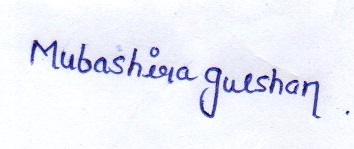 Mubashira gulshan .